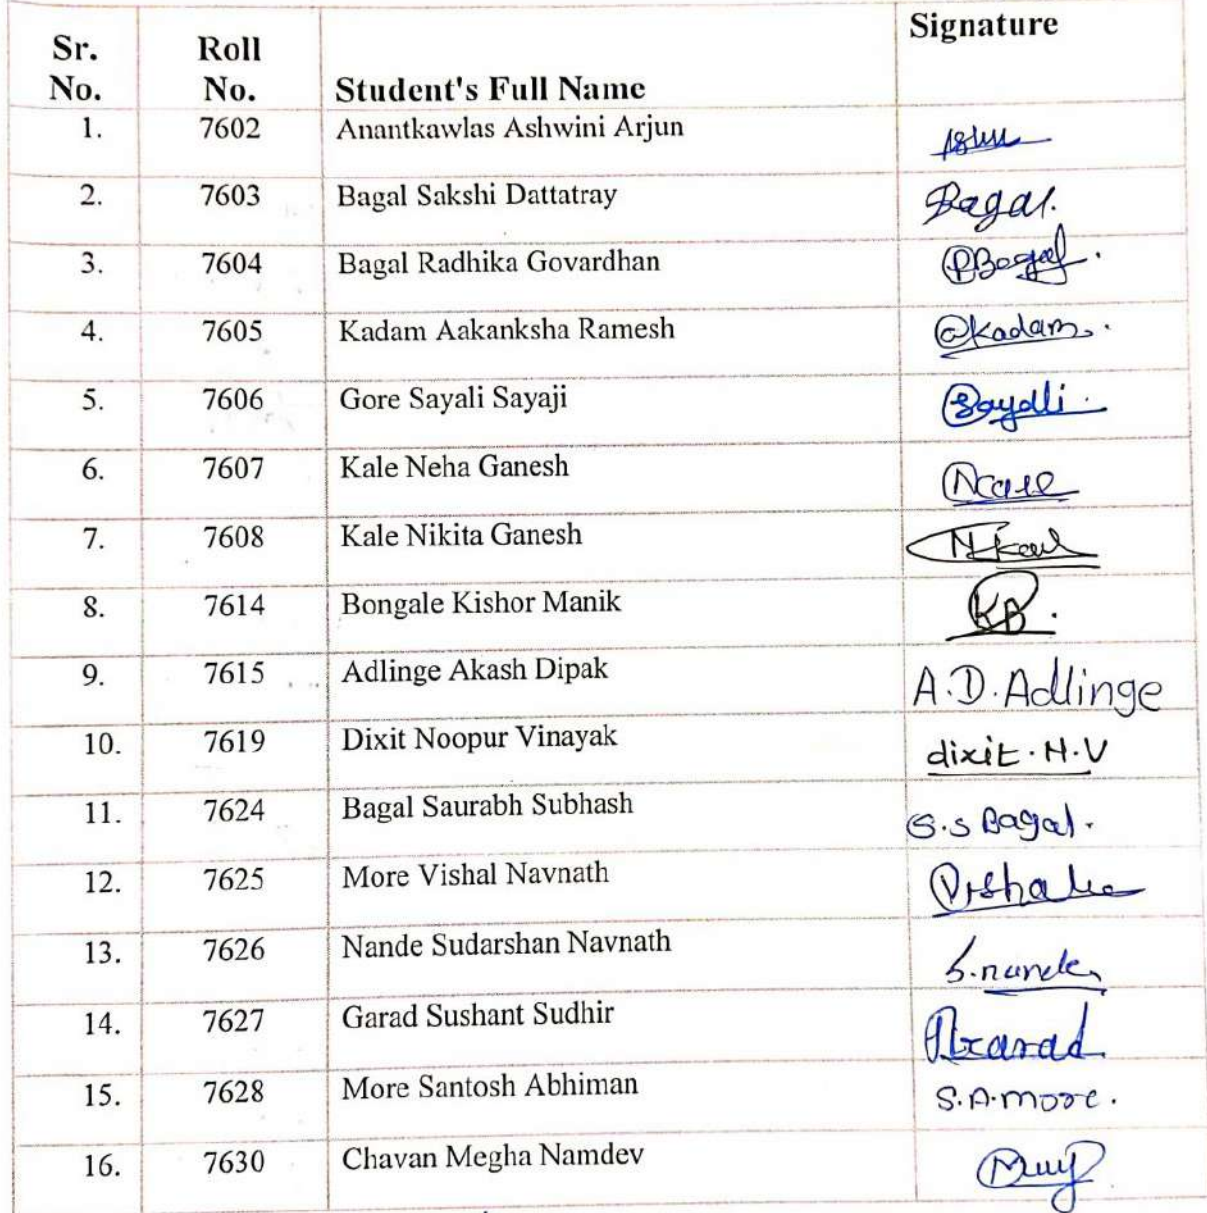 Sr. No. Roll No. Student's Full Name Signature
1. 7602 Anantkawlas Ashwini Arjun
2. 7603 Bagal Sakshi Dattatray Bagal.
3. 7604 Bagal Radhika Govardhan RBagal.
4. 7605 Kadam Aakanksha Ramesh @Kadam.
5. 7606 Gore Sayali Sayaji Sayali.
6. 7607 Kale Neha Ganesh
7. 7608 Kale Nikita Ganesh
8. 7614 Bongale Kishor Manik KB.
9. 7615 Adlinge Akash Dipak A.D.Adlinge
10. 7619 Dixit Noopur Vinayak dixit.N.V
11. 7624 Bagal Saurabh Subhash S.s Bagal.
12. 7625 More Vishal Navnath
13. 7626 Nande Sudarshan Navnath S.nande
14. 7627 Garad Sushant Sudhir
15. 7628 More Santosh Abhiman S.A.more.
16. 7630 Chavan Megha Namdev